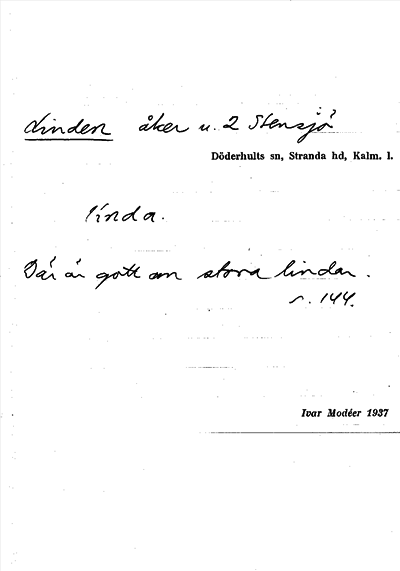 Linden åker u. 2 Stensjö
Döderhults sn, Stranda hd, Kalm. l.
linda.
Där är gott om stora lindar.
s. 144.
Ivar Modéer 1937